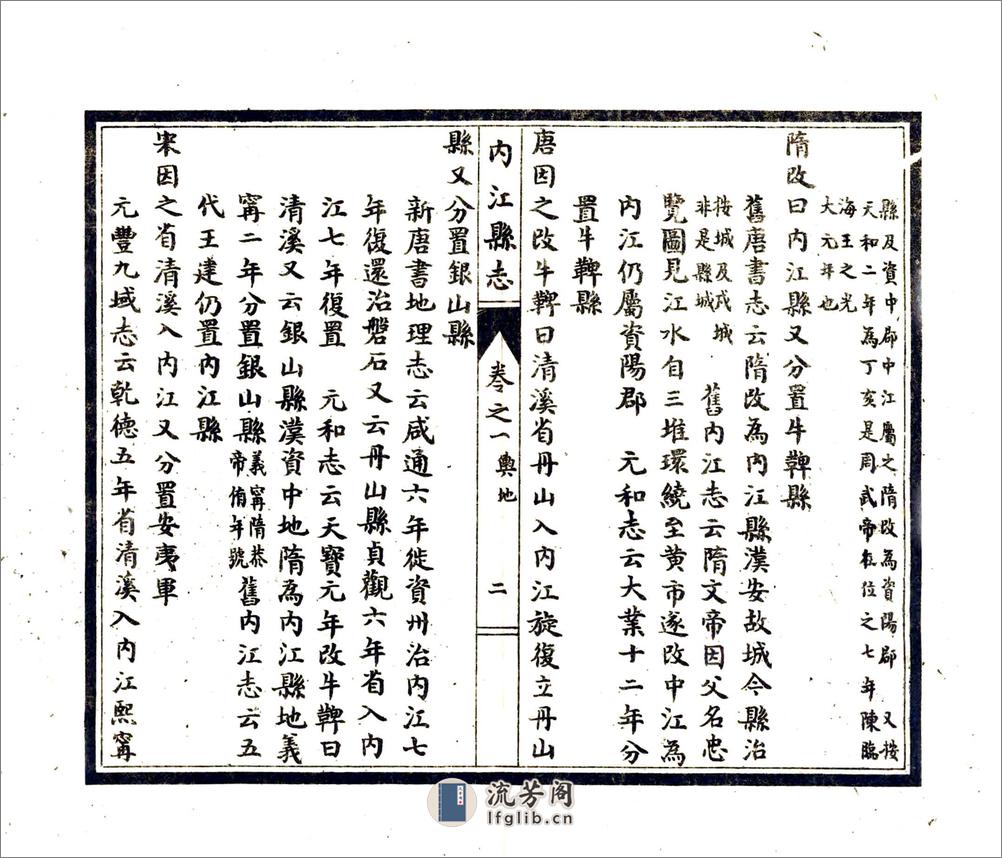 縣及資中郡中江屬之隋改為資陽郡　又按
天和二年為丁亥是周武帝在位之七年陳臨
海王之光
大元年也
隋改曰内江縣又分置牛鞞縣
舊唐書志云隋改為内江縣漢安故城今縣治
按城及戍城
非是縣城
舊内江志云隋文帝因父名忠
覽圖見江水自三堆環繞至黄市遂改中江為
内江仍屬資陽郡　元和志云大業十二年分
置牛鞞縣
唐因之改牛鞞曰清溪省丹山入内江旋復立丹山
内江縣志
卷之一　輿地
二
縣又分置銀山縣
新唐書地理志云咸通六年徙資州治内江七
年復還治磐石又云丹山縣貞觀六年省入内
江七年復置　元和志云天寶元年改牛鞞曰
清溪又云銀山縣漢資中地隋為内江縣地義
寧二年分置銀山縣
義寧隋恭
帝侑年號
舊内江志云五
代王建仍置内江縣
宋因之省清溪入内江又分置安夷軍
元豐九域志云乾德五年省清溪入内江熙寧
流芳阁
lfglib.cn